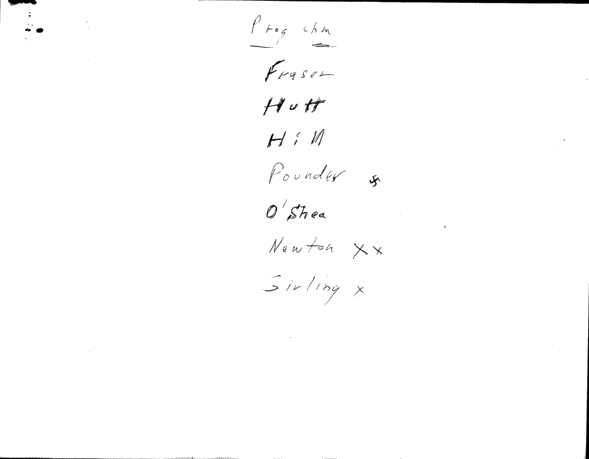 Prog chm
Fraser
Hutt
Hill
Pounder
O'Shea
Newton xx
Sirling x